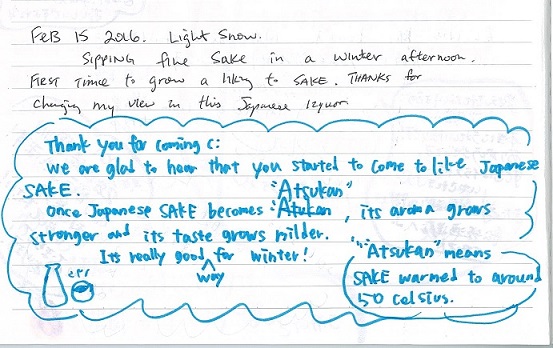 FEB 15 2016. Light Snow.
SIPPING fine Sake in a winter afternoon.
FIRST time to grow a liking to SAKE. THANKS for
changing my view in this Japanese liquor
Thank you for coming C:
we are glad to hear that you started to come to like Japanese
SAKE.
"Atsukan"
once Japanese SAKE becomes "Atukan, its aroma grows
stronger and its taste grows milder.
Its really good for winter!
way
"Atsukan" means
SAKE warmed to around
50 celsius.